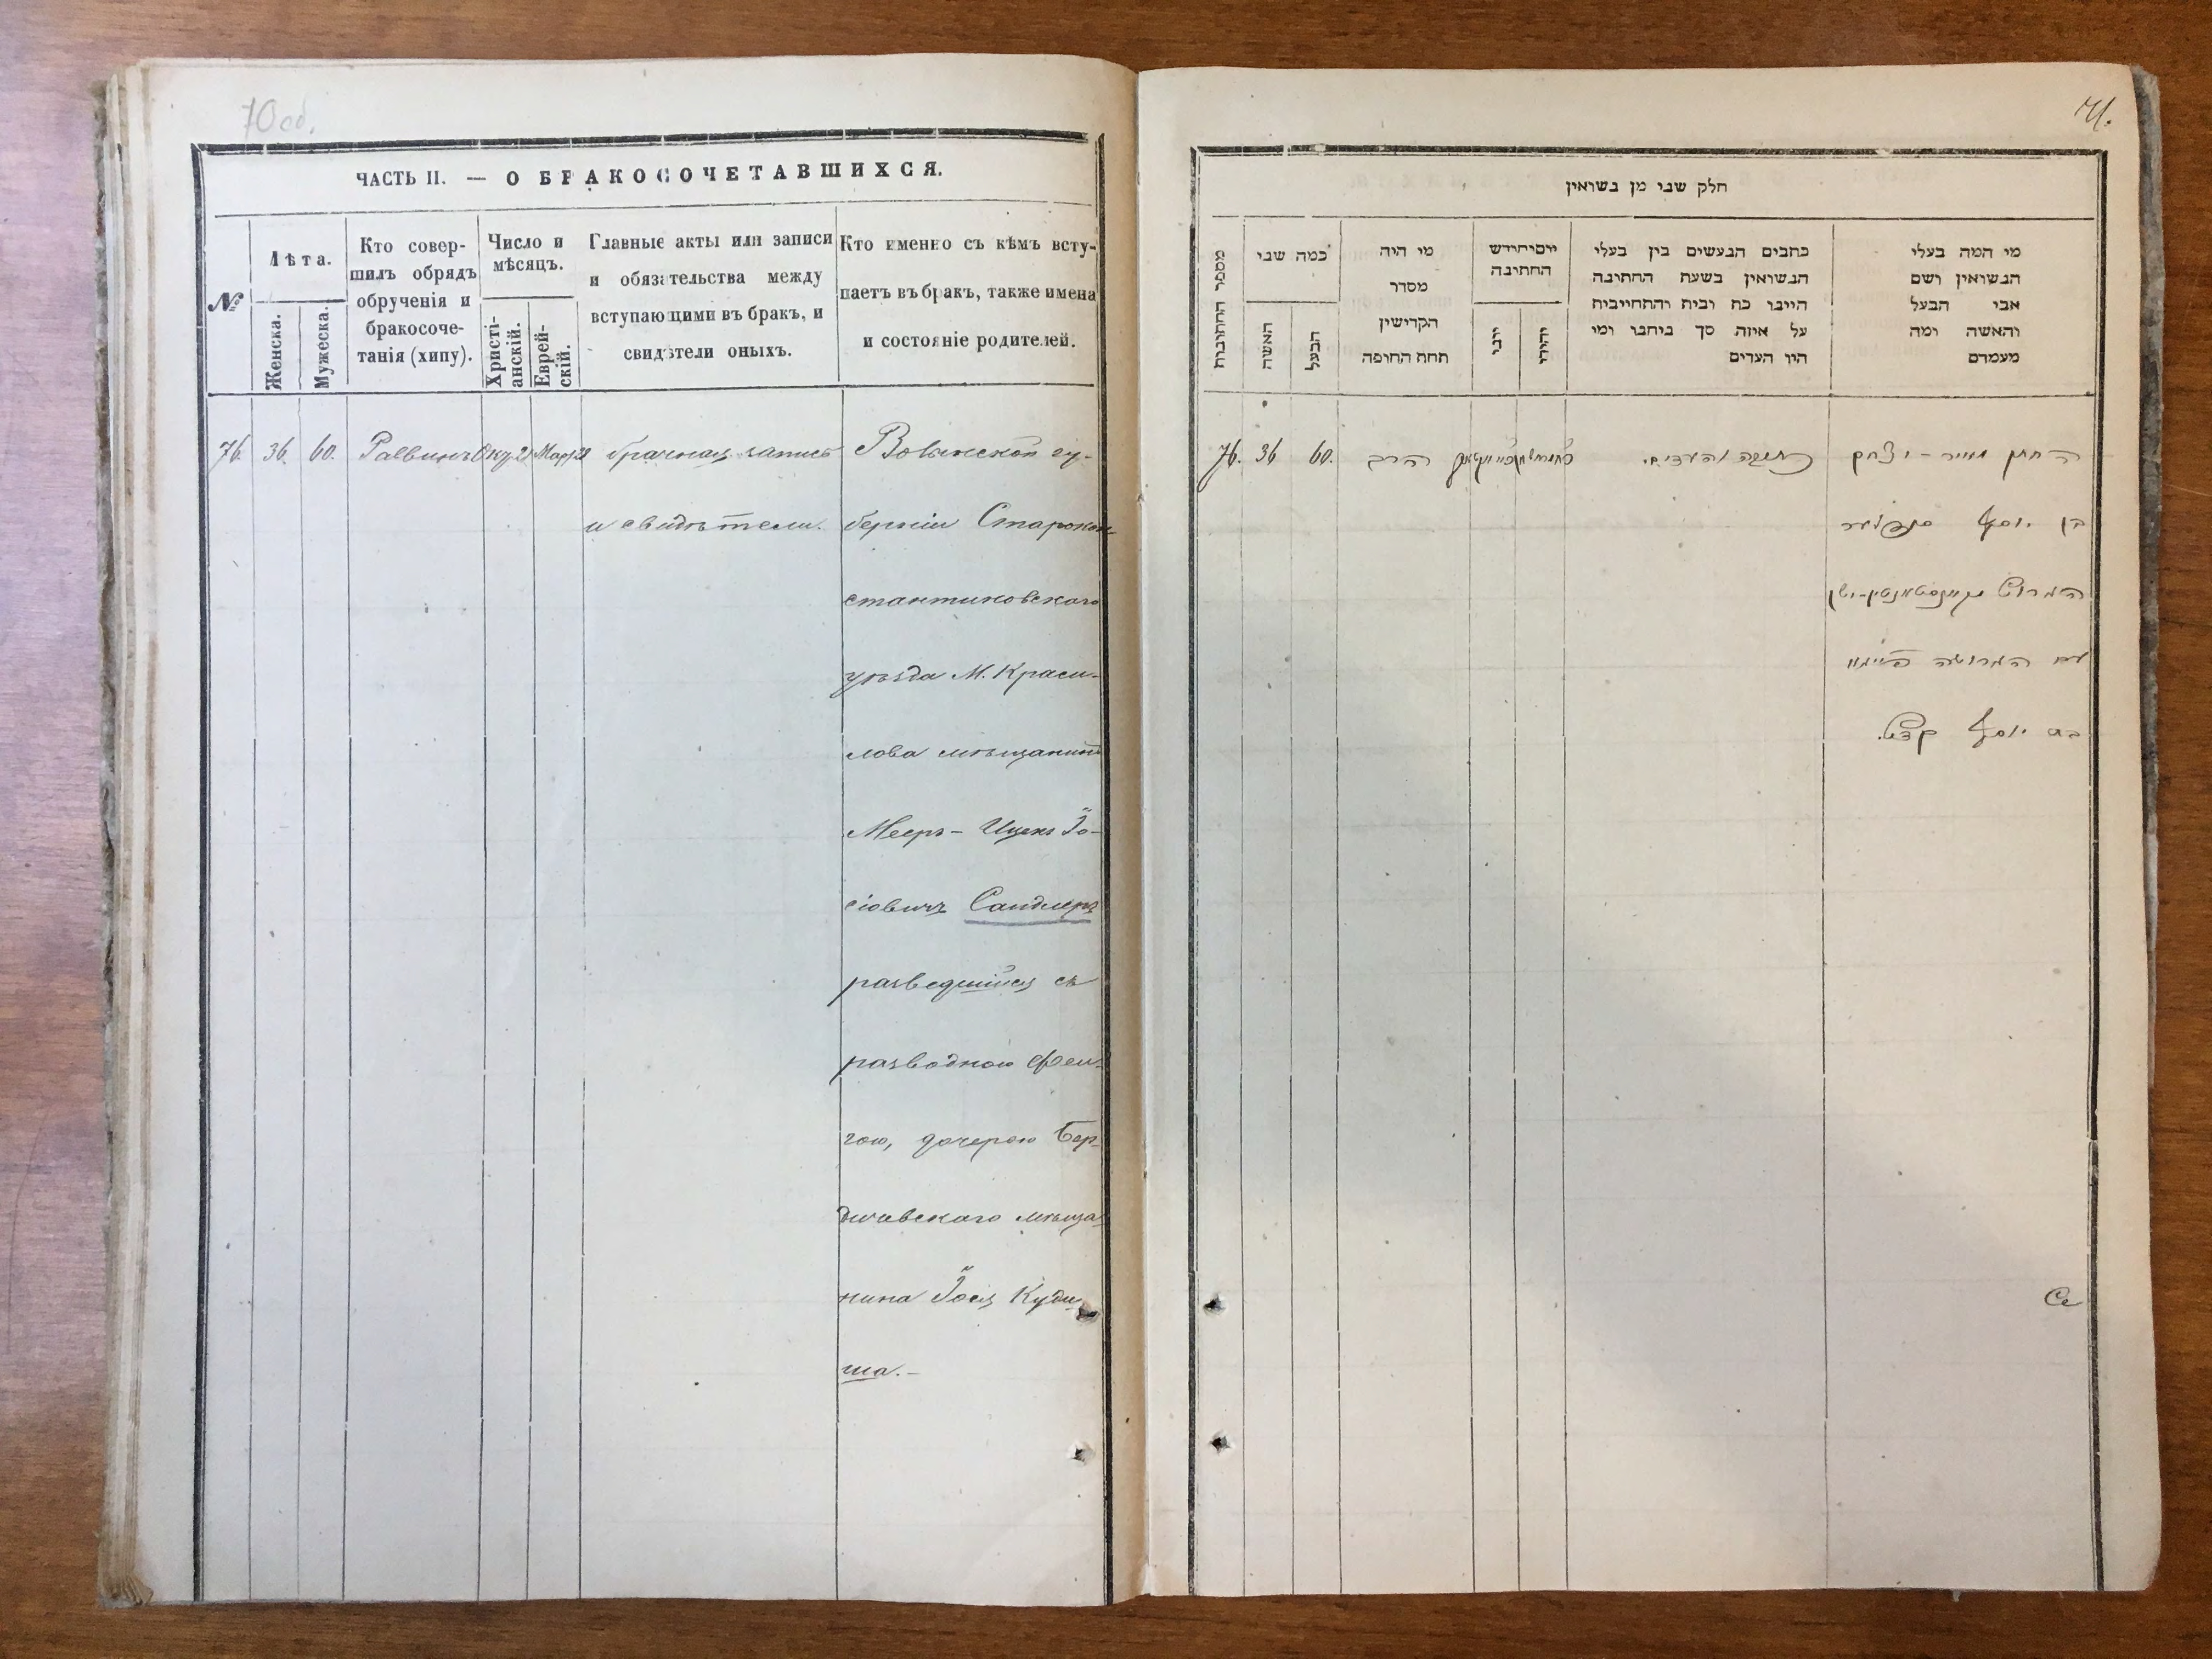 70 об.
ЧАСТЬ II. — О БРАКОСОЧЕТАВШИХСЯ.
№
Лѣта.
Женска.
Мужеска.
Кто совер-
шилъ обрядъ
обрученія и
бракосоче-
танія (хипу).
Число и
мѣсяцъ.
Христі-
анскій.
Еврей-
скій.
Главные акты или записи
и обязательства между
вступающими въ бракъ, и
свидѣтели оныхъ.
Кто именно съ кѣмъ всту-
паетъ въ бракъ, также имена
и состояніе родителей.
76. 36. 60. Раввинъ брачная запись
и свидѣтели.
Волынской гу-
берніи Старокон-
стантиновскаго
уѣзда М. Краси-
лова мѣщанинъ
Мееръ-Ицекъ Іо-
сіовичъ Сандлеръ
разведшійся съ
разводною Фей-
гою, дочерью Бер-
дичевскаго мѣща-
нина Іося Куди
ша.-
71.
חלק שני מן נשואין
מספר החתונות
כמה שני
האשה
הבעל
מי היה
מסדר
הקדישין
תחת החופה
יום וחודש
החתונה
יוני
יהודי
כתבים הנעשים בין בעלי
הנשואין בשעת החתונה
היינו כת ובית והתחייבית
על איזה סך ביחבו ומי
היו העדים
מי המה בעלי
הנשואין ושם
אבי הבעל
והאשה ומה
מעמדם
76. 36 60. הרב
כתובה והעדים.
החתן מאיר-יצחק
בן יוסף סנדלער
הגרוש
עם הגרושה פייגא
בת יוסף קדיש.